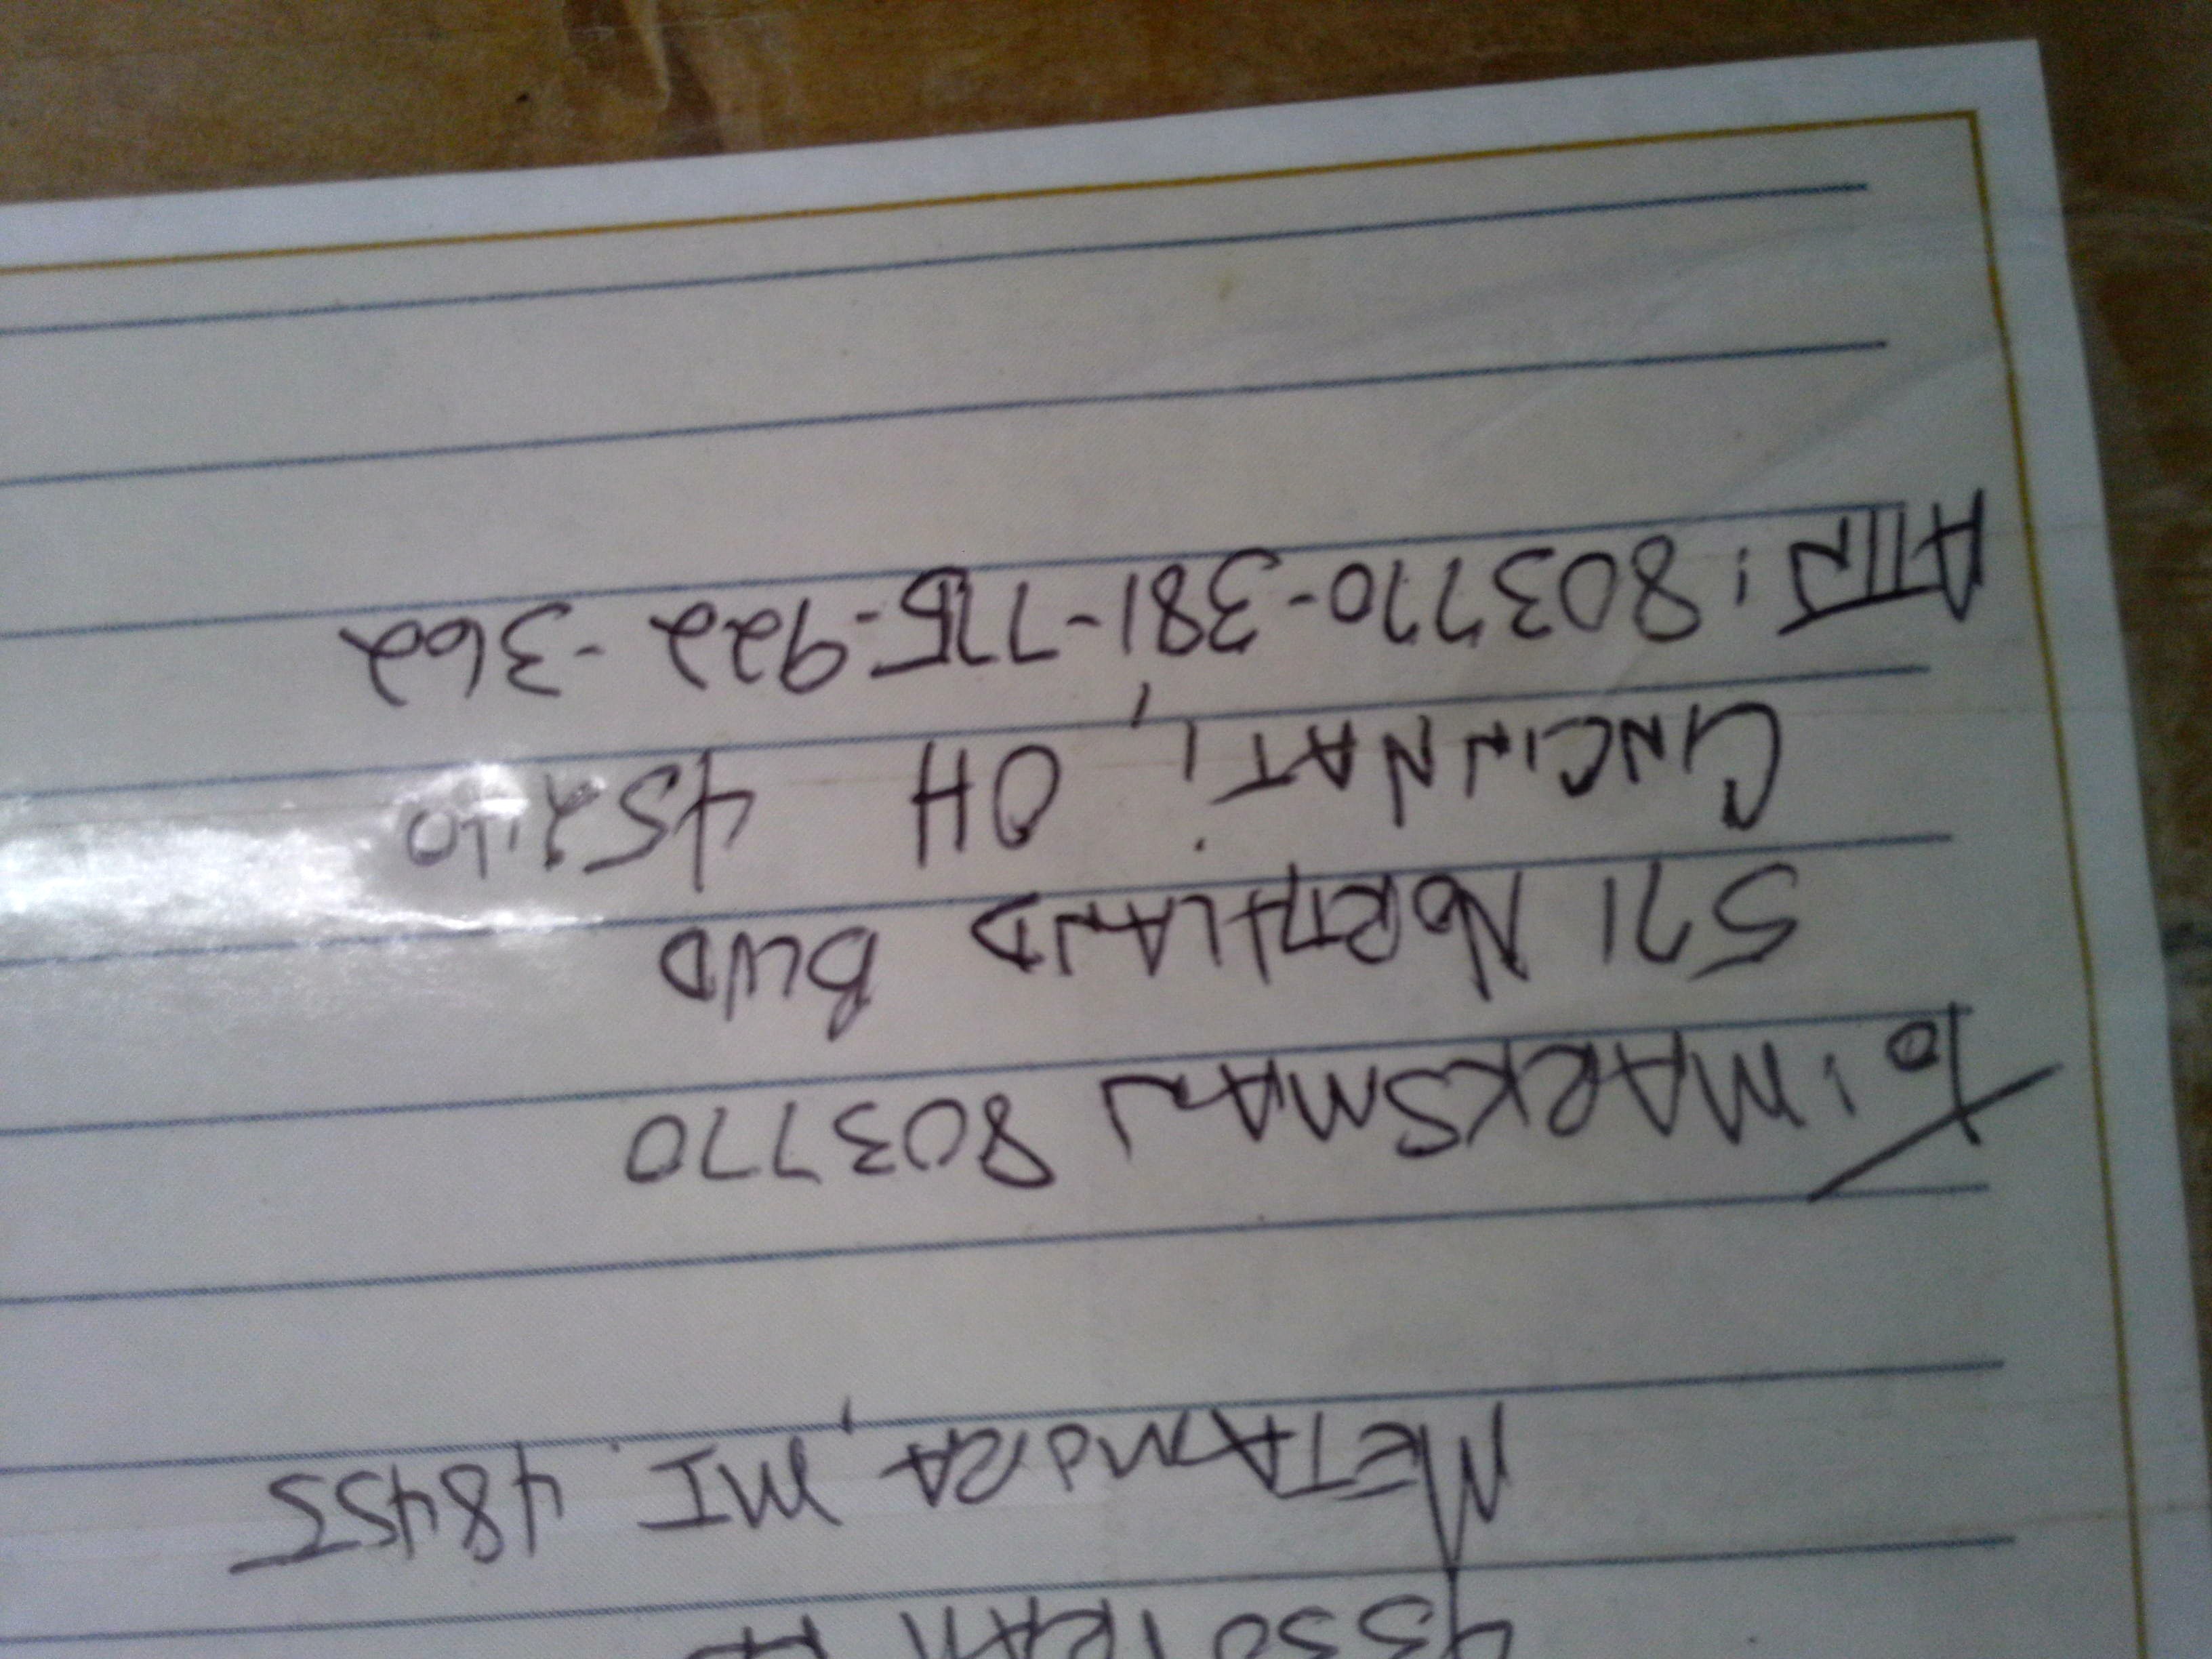 4350 PRATT
METAMORA, MI 48455
To: MARKSMAN 803770
571 NORTHLAND BLVD
CINCINNATI, OH 45240
ATTN: 803770-381-775-922-362